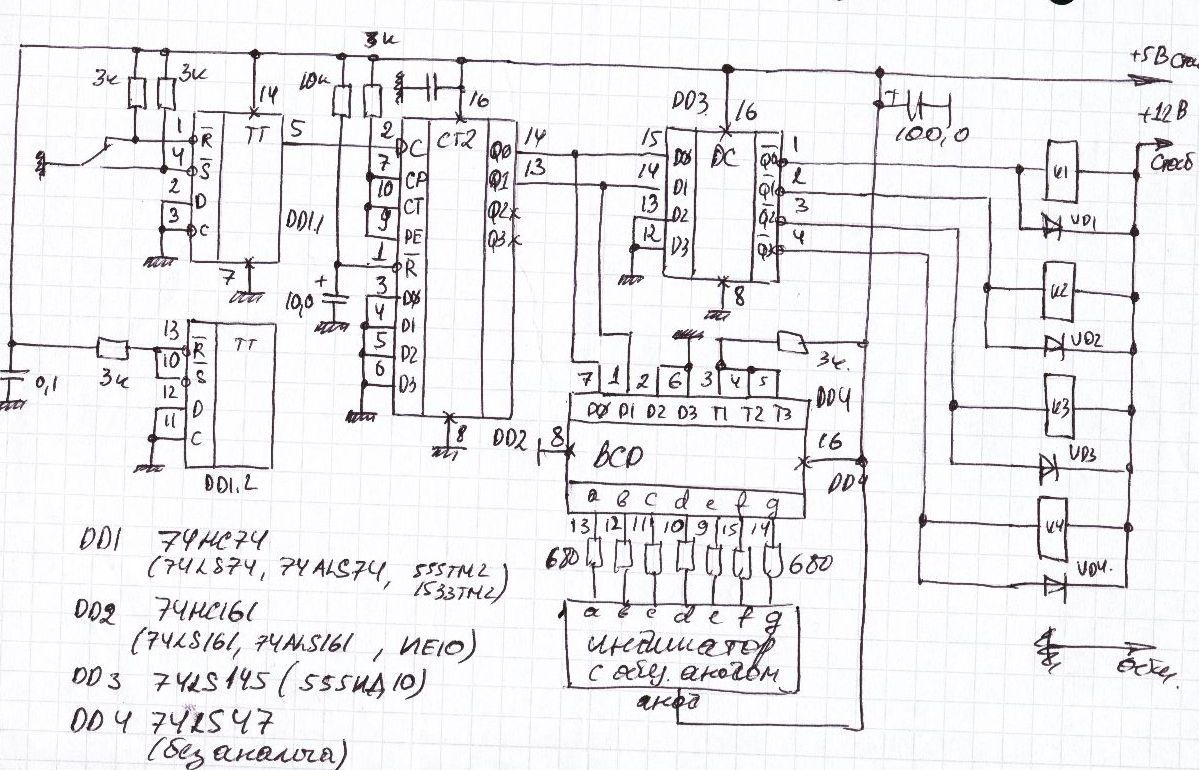 3к
+5В стаб
3к 3к 10к
14 16 DD3 16 +
+12В
100,0
стаб
1 R TT 5 2 C CT2 Q0 14 15 D0 DC Q0 1
4 S 7 CP Q1 13 14 D1 Q1 2 К1
2 D 10 CT Q2 13 D2 Q2 3
3 C DD1.1 9 PE Q3 12 D3 Q3 4 VD1
7 1 R
+
10,0 3 D0 8 К2
4 D1
13 R TT 5 D2 VD2
0,1 3к 10 S 6 D3 3к.
12 D 7 1 2 6 3 4 5 DD4 К3
11 C D0 D1 D2 D3 T1 T2 T3
8 DD2 8 BCD 16 VD3
DD1.2 DD4
a b c d e f g К4
13 12 11 10 9 15 14
680 680 VD4.
a b c d e f g
индикатор
с общ. анодом
анод
Общ.
DD1 74HC74
(74LS74, 74ALS74, 555ТМ2
1533ТМ2)
DD2 74HC161
(74LS161, 74ALS161, ИЕ10)
DD3 74LS145 (555ИД10)
DD4 74LS47
(без аналога)